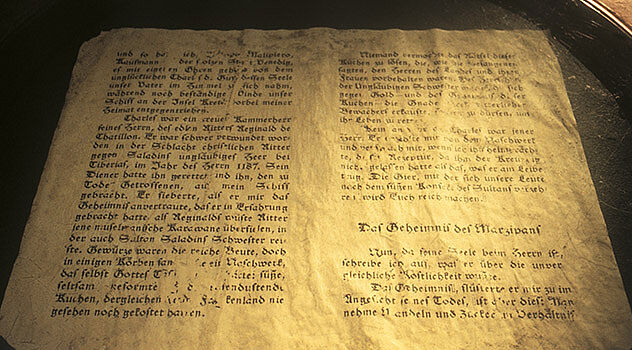 und so ha ich, Malipiero,
Kaufmann der stolzen Sta Venedig,
es mit eigenen Ohren gehört von dem
unglücklichen Charles de Guy, dessen Seele
unser Vater im Himmel zu sich nahm,
während noch beständige Winde unser
Schiff an der Insel Kreta vorbei meiner
Heimat entgegentrieben.
Charles war ein treuer Kammerherr
seines Herrn, des edlen Ritters Reginald de
Chatillon. Er war schwer verwundet wor-
den in der Schlacht christlichen Ritter
gegen Saladins ungläubiges Heer bei
Tiberias, im Jahr des Herrn 1187. Sein
Diener hatte ihn gerettet und ihn, den zu
Tode Getroffenen, auf mein Schiff
gebracht. Er fieberte, als er mir das
Geheimnis anvertraute, daß er in Erfahrung
gebracht hatte, als Reginalds wüste Ritter
jene muselmanische Karawane überfielen, in
der auch Sultan Saladins Schwester rei-
ste. Gewürze waren die reiche Beute, doch
in einigen Körben fan ein Naschwerk,
das selbst Gottes süße,
seltsam geformte tausendunstend
Kuchen, dergleichen Frankenland nie
gesehen noch gekostet hatten.
Niemand vermochte das Rätsel dieser
Kuchen zu lösen, die, wie die Gefangenen
sagten, den Herren des Landes und ihren
Frauen vorbehalten waren.
der Ungläubigen Schwester sich
gegen Gold und der
Kuchen die Gnade ritterliche
Bewacher erkaufte zu dürfen, um
ihr Leben zu retten.
Kein an Charles war jener
Herr. Er mit dem Naschwerk
und versprach mir, wenn ich ihn heim brach-
te, die Rezeptur, da ihn der Kreuzzug
nichts gelassen hatte als das, was er am Leibe
trug. Die Gier, mit der sich unsere Leute
nach dem süßen Konfekt des Sultans verzehr-
ten, wird Euch reich machen.
Das Geheimnis des Marzipans
Nun, da seine Seele beim Herrn ist,
schreibe ich auf, was er über die unver-
gleichliche Köstlichkeit wußte.
Das Geheimnis, flüsterte er mir zu im
Angesicht seines Todes, ist aber dies: Man
nehme Mandeln und Zucker im Verhältnis